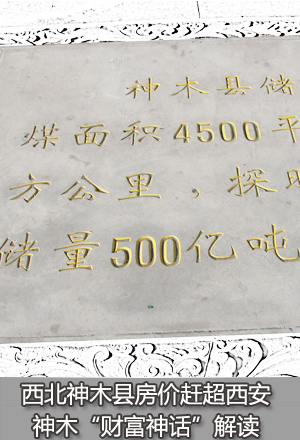 神木县储
煤面积4500平
方公里，探明
储量500亿吨
西北神木县房价赶超西安
神木“财富神话”解读